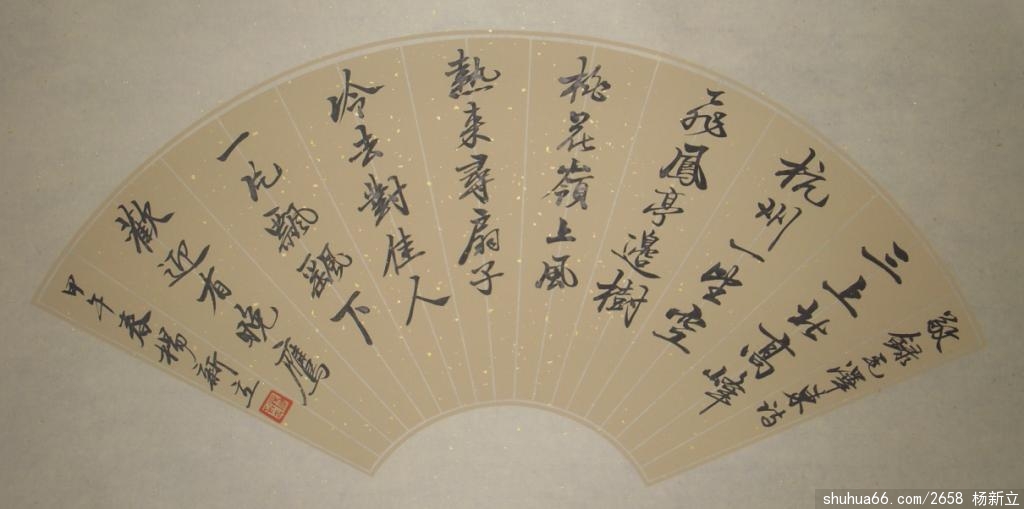 敬錄毛澤東詩
三上北高峰
杭州一望空
飛鳳亭邊樹
桃花嶺上風
熱来尋扇子
冷去對佳人
一片飄飄下
歡迎有晚鷹
甲午春楊新立
shuhua66.com/2658 杨新立